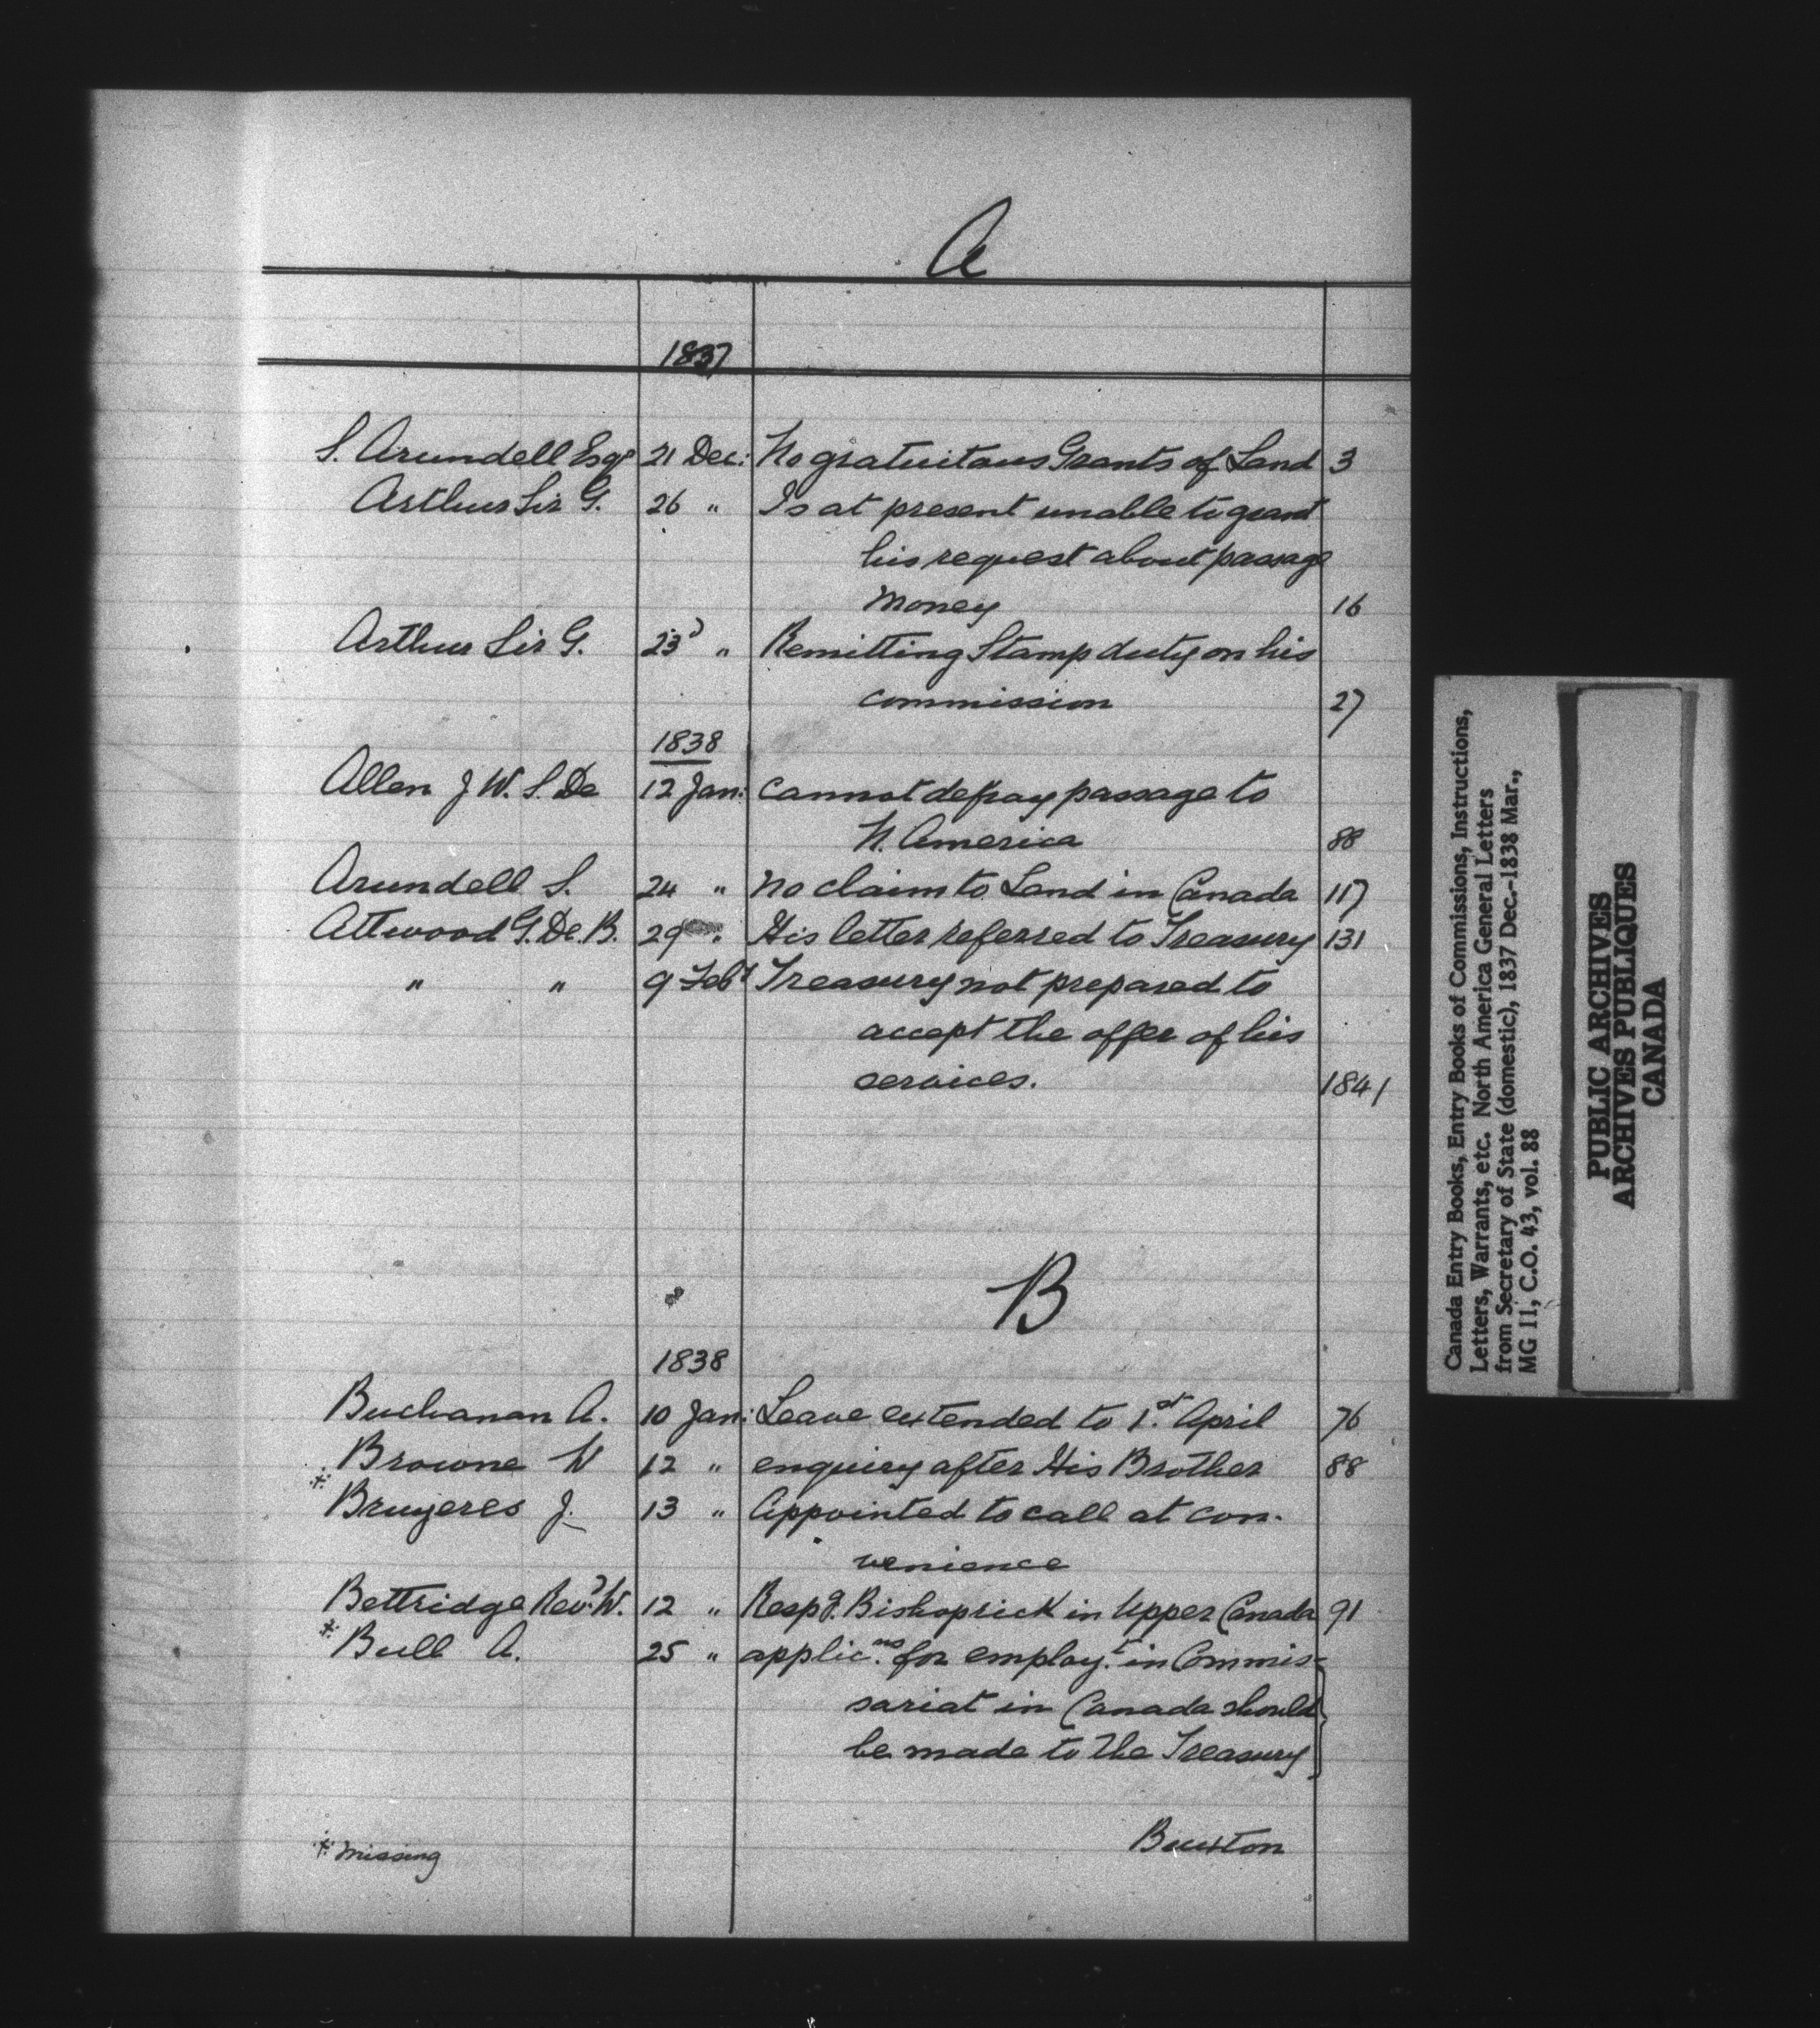 A
1837
S. Arundell Esqr 21 Dec: No gratuitous Grants of Land 3
Arthur Sir G. 26 " Is at present unable to grant
his request about passage
Money 16
Arthur Sir G. 23d " Remitting Stamp duty on his
commission 27
1838
Allen J W. S. De 12 Jan: cannot defray passage to
N. America 88
Arundell S. 24 " no claim to Land in Canada 117
Attwood G. De. B. 29 " His letter referred to Treasury 131
" " 9 Feby Treasury not prepared to
accept the offer of his
services. 1841
B
1838
Buchanan A. 10 Jan: Leave extended to 1st. April 76
Browne W 12 " enquiry after His Brother 88
* Bruyeres J. 13 " Appointed to call at con-
venience
Bettridge Revd. W. 12 " Respg. Bishoprick in Upper Canada 91
* Bull A. 25 " applicns. for employt. in Commis-
sariat in Canada should
be made to the Treasury
* missing
Buxton
Canada Entry Books, Entry Books of Commissions, Instructions,
Letters, Warrants, etc. North America General Letters
from Secretary of State (domestic), 1837 Dec.-1838 Mar.,
MG 11, C.O. 43, vol. 88
PUBLIC ARCHIVES
ARCHIVES PUBLIQUES
CANADA